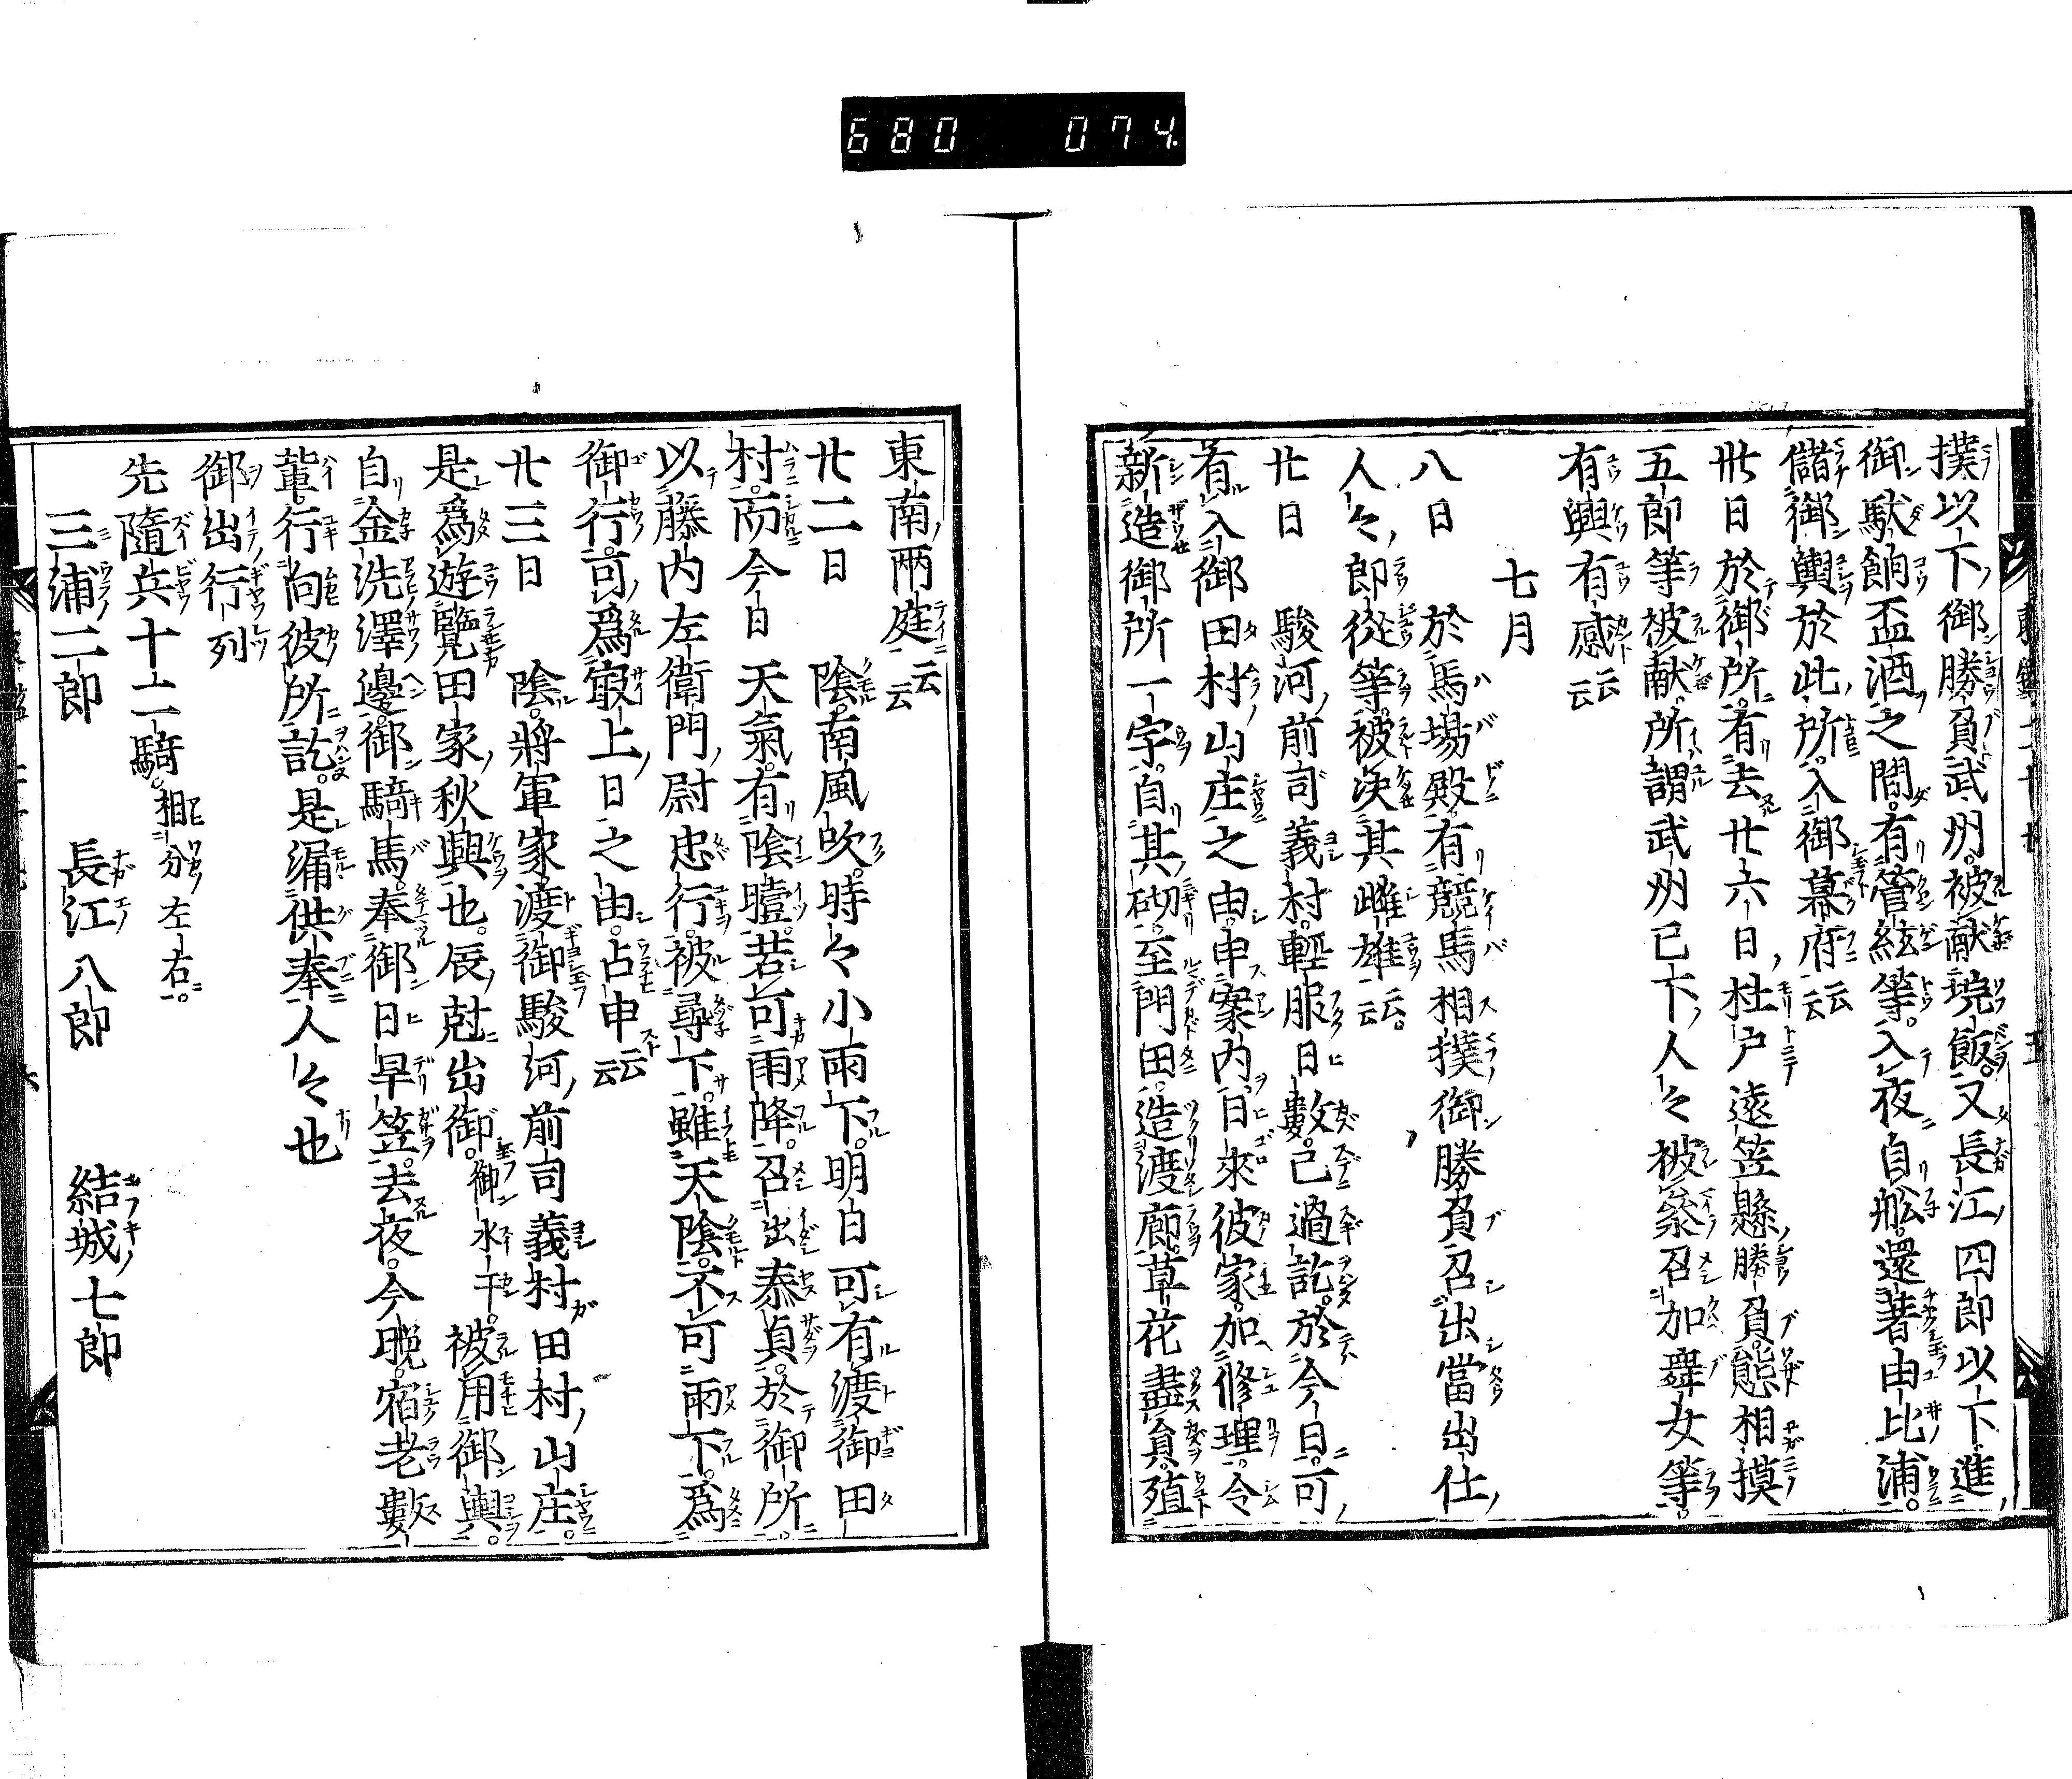 680 074
撲以下御勝負武州被献垸飯又長江四郎以下進
御駄餉盃酒之間有管絃等入夜自舩還著由比浦
儲御輿於此所入御幕府云云
卅日於御所有去廿六日杜戸遠笠懸勝負態相摸
五郎等被献所謂武州已下人々被參召加舞女等
有興有感云云
七月
八日 於馬場殿有競馬相撲御勝負召出當出仕
人々即從等被決其雌雄云云
廿日 駿河前司義村輕服日數已過訖於今日可
有入御田村山庄之由申案内日來彼家加修理令
新造御所一宇自其砌至門田造渡廊草花盡員殖
東南兩庭云云
廿二日 陰南風吹時々小雨下明日可有渡御田
村而今日天氣有陰曀若可雨降召出泰貞於御所
以藤内左衛門尉忠行被尋下雖天陰不可雨下爲
御行可爲㝡上日之由占申云云
廿三日 陰將軍家渡御駿河前司義村田村山庄
是爲遊覽田家秋興也辰尅出御御水干被用御輿
自金洗澤邊御騎馬奉御日早笠去夜今晩宿老數
輩行向彼所訖是漏供奉人々也
御出行列
先隨兵十二騎相分左右
三浦二郎 長江八郎 結城七郎